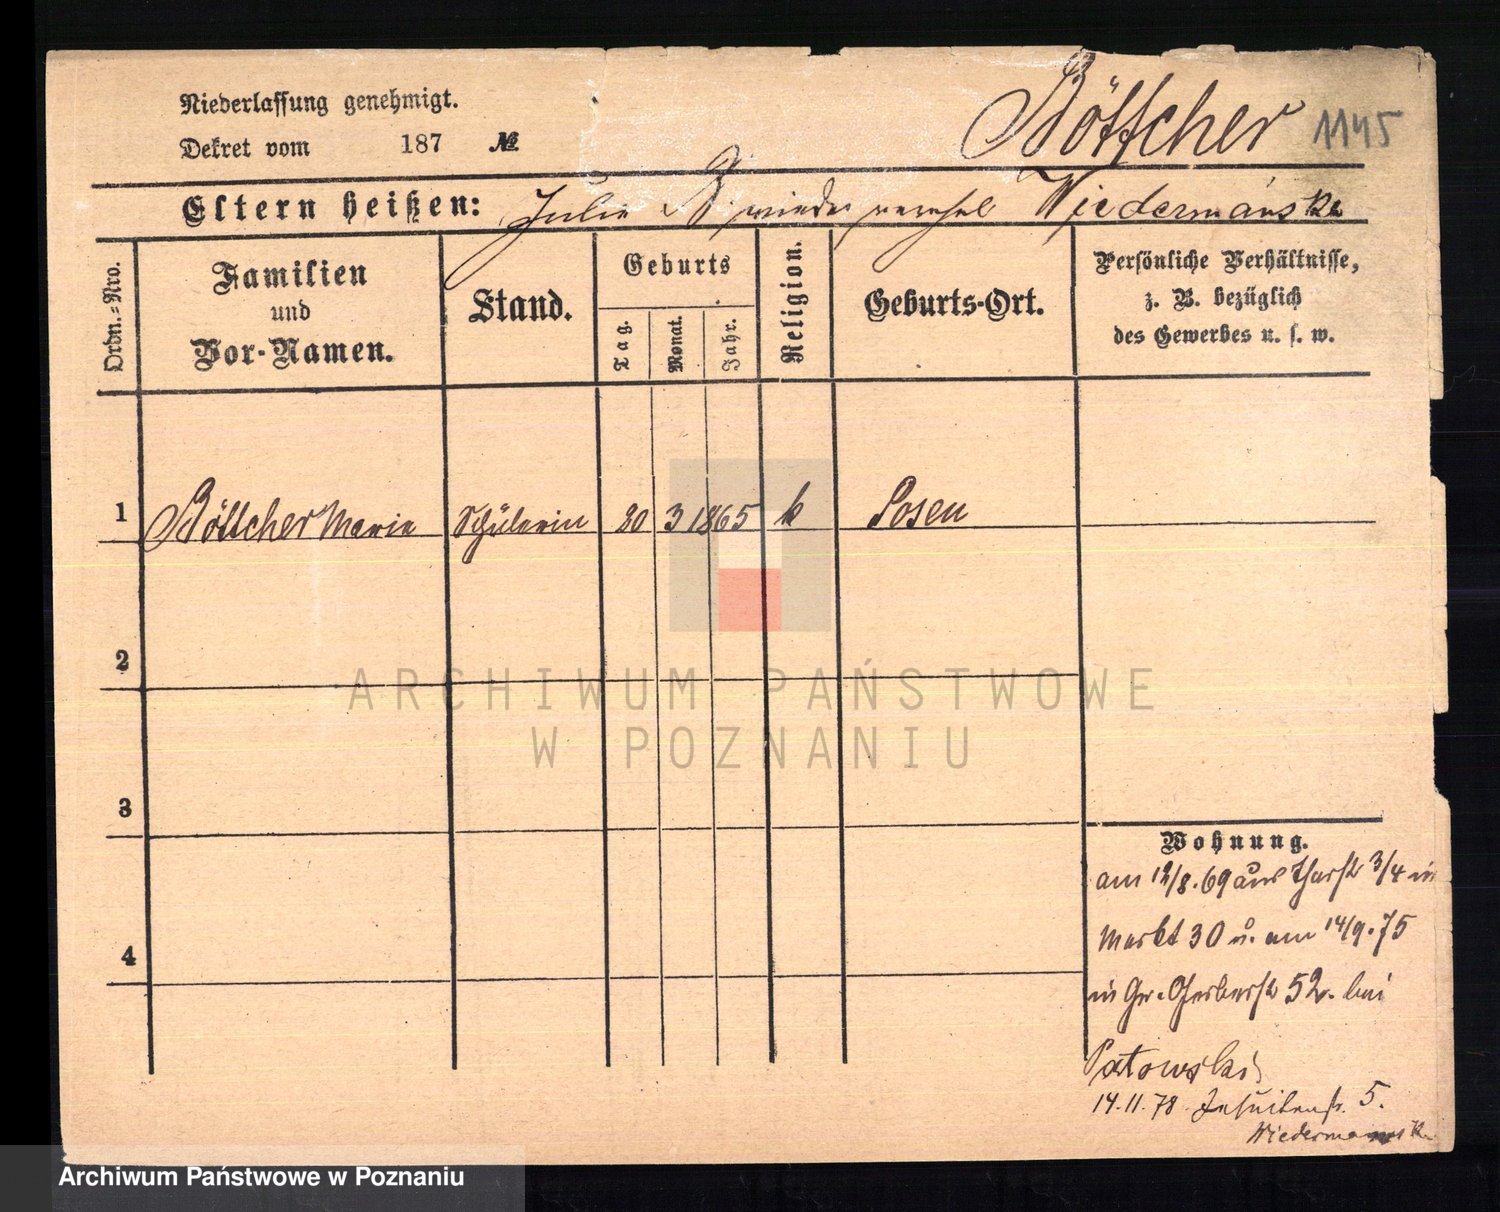 Niederlassung genehmigt.
Dekret vom 187 №
Böttcher 1145
Eltern heißen: Julie B. wieder verehel Wiedermanska
Ordn.-Nro.
Familien
und
Vor-Namen.
Stand.
Geburts
Tag.
Monat.
Jahr.
Religion.
Geburts-Ort.
Persönliche Verhältnisse,
z. B. bezüglich
des Gewerbes u. s. w.
1 Böttcher Marie Schülerin 20 3 1865 k Posen
2
3
4
ARCHIWUM PAŃSTWOWE
W POZNANIU
Wohnung.
am 12/8.69 aus 3/4 in
Markt 30 u. am 14/9.75
in Gr. Gerberstr 52. bei
Patowski
14.11.78 Jesuitenstr. 5.
Wiedermanska
Archiwum Państwowe w Poznaniu